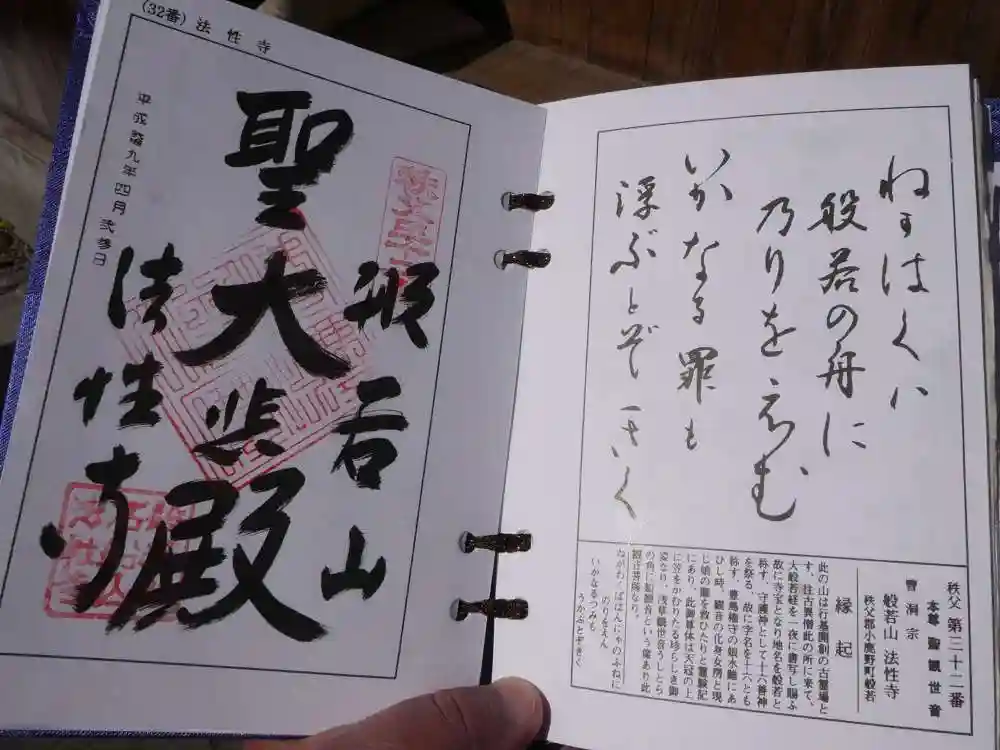 (32番) 法性寺
般若山
聖大悲殿
法性寺
平成拾九年四月弐参日
ねがはくハ
般若の舟に
乃りをえむ
いかなる罪も
浮ぶとぞきく
秩父 第三十二番
本尊 聖観世音
曹洞宗
般若山 法性寺
秩父郡小鹿野町般若
縁起
此の山は行基開創の古霊場と
す、往古異僧此の所に来て、
大般若経を一夜に書写し賜ふ
故に寺宝となり地名を般若と
称す、守護神として十六善神
を祭る、故に字名を十六とも
称す、豊島権守の娘水難にあ
ひし時、観音の化身女房と現
じ娘の難を救ひたりと霊験記
にあり、此御尊体は天冠の上
に笠をかむりたる珍らしき御
姿なり、浅草観世音うしとら
の角に船観音という像あり此
観音菩薩なり。
ねがわくばはんにゃのふねに
のりをえん
いかなるつみも
うかぶとぞきく